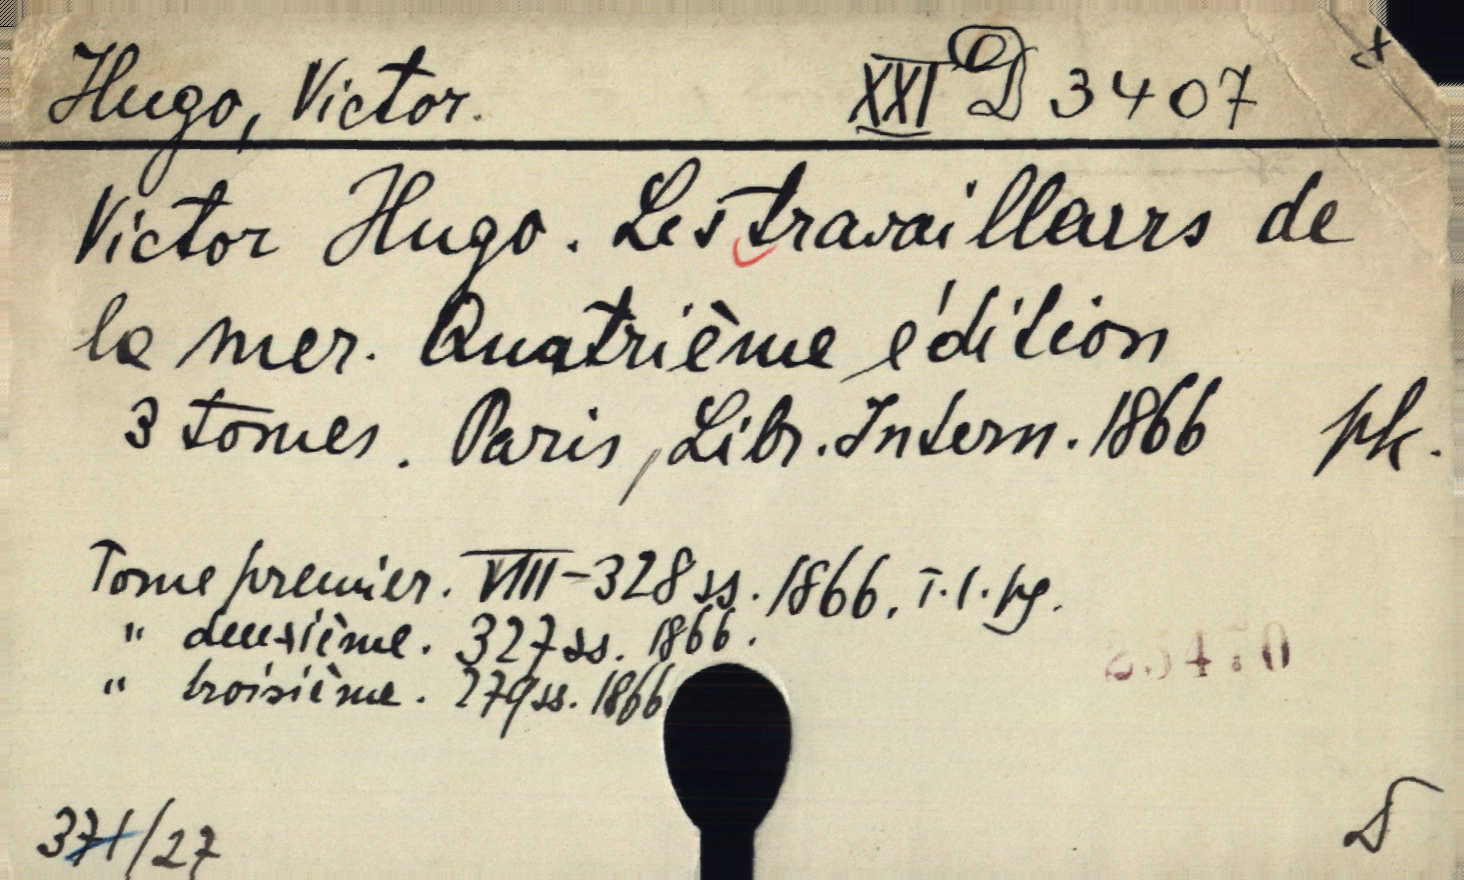 Hugo, Victor. XXI D 3407
Victor Hugo. Les travailleurs de
la mer. Quatrième édition
3 tomes. Paris, Libr. Intern. 1866 pk.
Tome premier. VIII-328 ss. 1866.
" deuxième. 327 ss. 1866.
" troisième. 279 ss. 1866
371/27